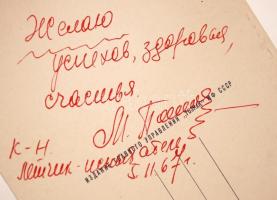 Желаю
успехов, здоровья,
счастья.
М. Попов
К-Н.
лётчик-испытатель
5.11.67г.
ИЗДАНИЕ УПРАВЛЕНИЯ СССР